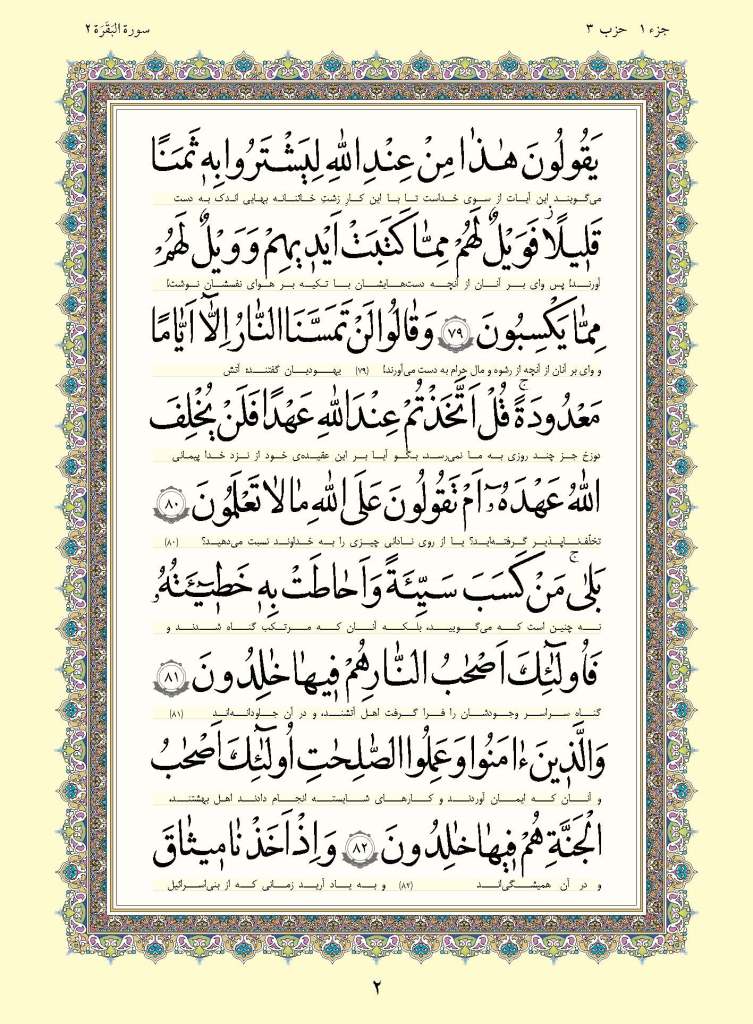 جزء ۱ حزب ۳
سورة البَقَرَة ۲
يَقُولُونَ هٰذا مِنْ عِنْدِ اللّٰهِ لِيَشْتَرُوا بِهٖ ثَمَنًا
می‌گویند این آیات از سوی خداست تا با این کار زشت خائنانه بهایی اندک به دست
قَلِيلًا ۖ فَوَيْلٌ لَهُمْ مِمّا كَتَبَتْ اَيْدِيهِمْ وَ وَيْلٌ لَهُمْ
آورند! پس وای بر آنان از آنچه دست‌هایشان با تکیه بر هوای نفسشان نوشت!
مِمّا يَكْسِبُونَ ﴿۷۹﴾ وَ قالُوا لَنْ تَمَسَّنَا النّارُ اِلّآ اَيّامًا
و وای بر آنان از آنچه از رشوه و مال حرام به دست می‌آورند! (۷۹) یهودیان گفتند: آتش
مَعْدُودَةً ۚ قُلْ اَتَّخَذْتُمْ عِنْدَ اللّٰهِ عَهْدًا فَلَنْ يُخْلِفَ
دوزخ جز چند روزی به ما نمی‌رسد. بگو آیا بر این عقیده‌ی خود از نزد خدا پیمانی
اللّٰهُ عَهْدَهُۥٓ اَمْ تَقُولُونَ عَلَى اللّٰهِ ما لا تَعْلَمُونَ ﴿۸۰﴾
تخلّف‌ناپذیر گرفته‌اید؟ یا از روی نادانی چیزی را به خداوند نسبت می‌دهید؟ (۸۰)
بَلىٰ ۚ مَنْ كَسَبَ سَيِّئَةً وَ اَحاطَتْ بِهٖ خَطٓيـَٔتُهُ
نه چنین است که می‌گویید، بلکه آنان که مرتکب گناه شدند و
فَاُولٰٓئِكَ اَصْحٰبُ النّارِ هُمْ فِيها خٰلِدُونَ ﴿۸۱﴾
گناه سراسر وجودشان را فرا گرفت اهل آتشند، و در آن جاودانه‌اند (۸۱)
وَالَّذِينَ ءامَنُوا وَ عَمِلُوا الصّٰلِحٰتِ اُولٰٓئِكَ اَصْحٰبُ
و آنان که ایمان آوردند و کارهای شایسته انجام دادند اهل بهشتند،
الْجَنَّةِ هُمْ فِيها خٰلِدُونَ ﴿۸۲﴾ وَ اِذْ اَخَذْنا مِيثاقَ
و در آن همیشگی‌اند (۸۲) و به یاد آرید زمانی که از بنی‌اسرائیل
۲